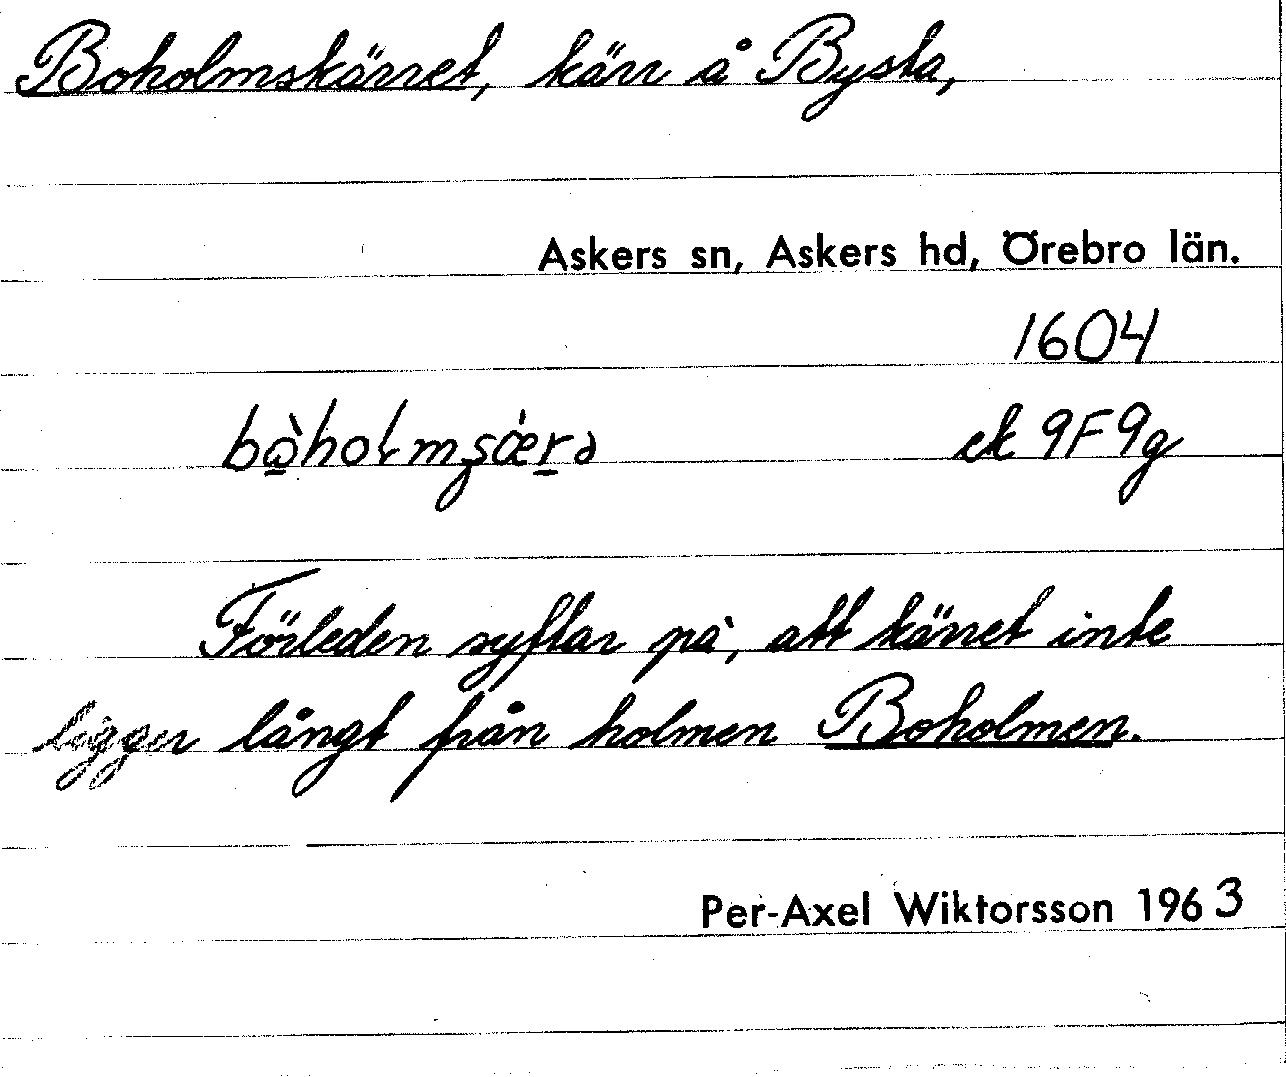 Boholmskärret, kärr å Bysta,
Askers sn, Askers hd, Örebro län.
1604
bò̲hoɭmʂæ̀r̲ə ek 9F9g
Förleden syftar på, att kärret inte
ligger långt från holmen Boholmen.
Per-Axel Wiktorsson 1963